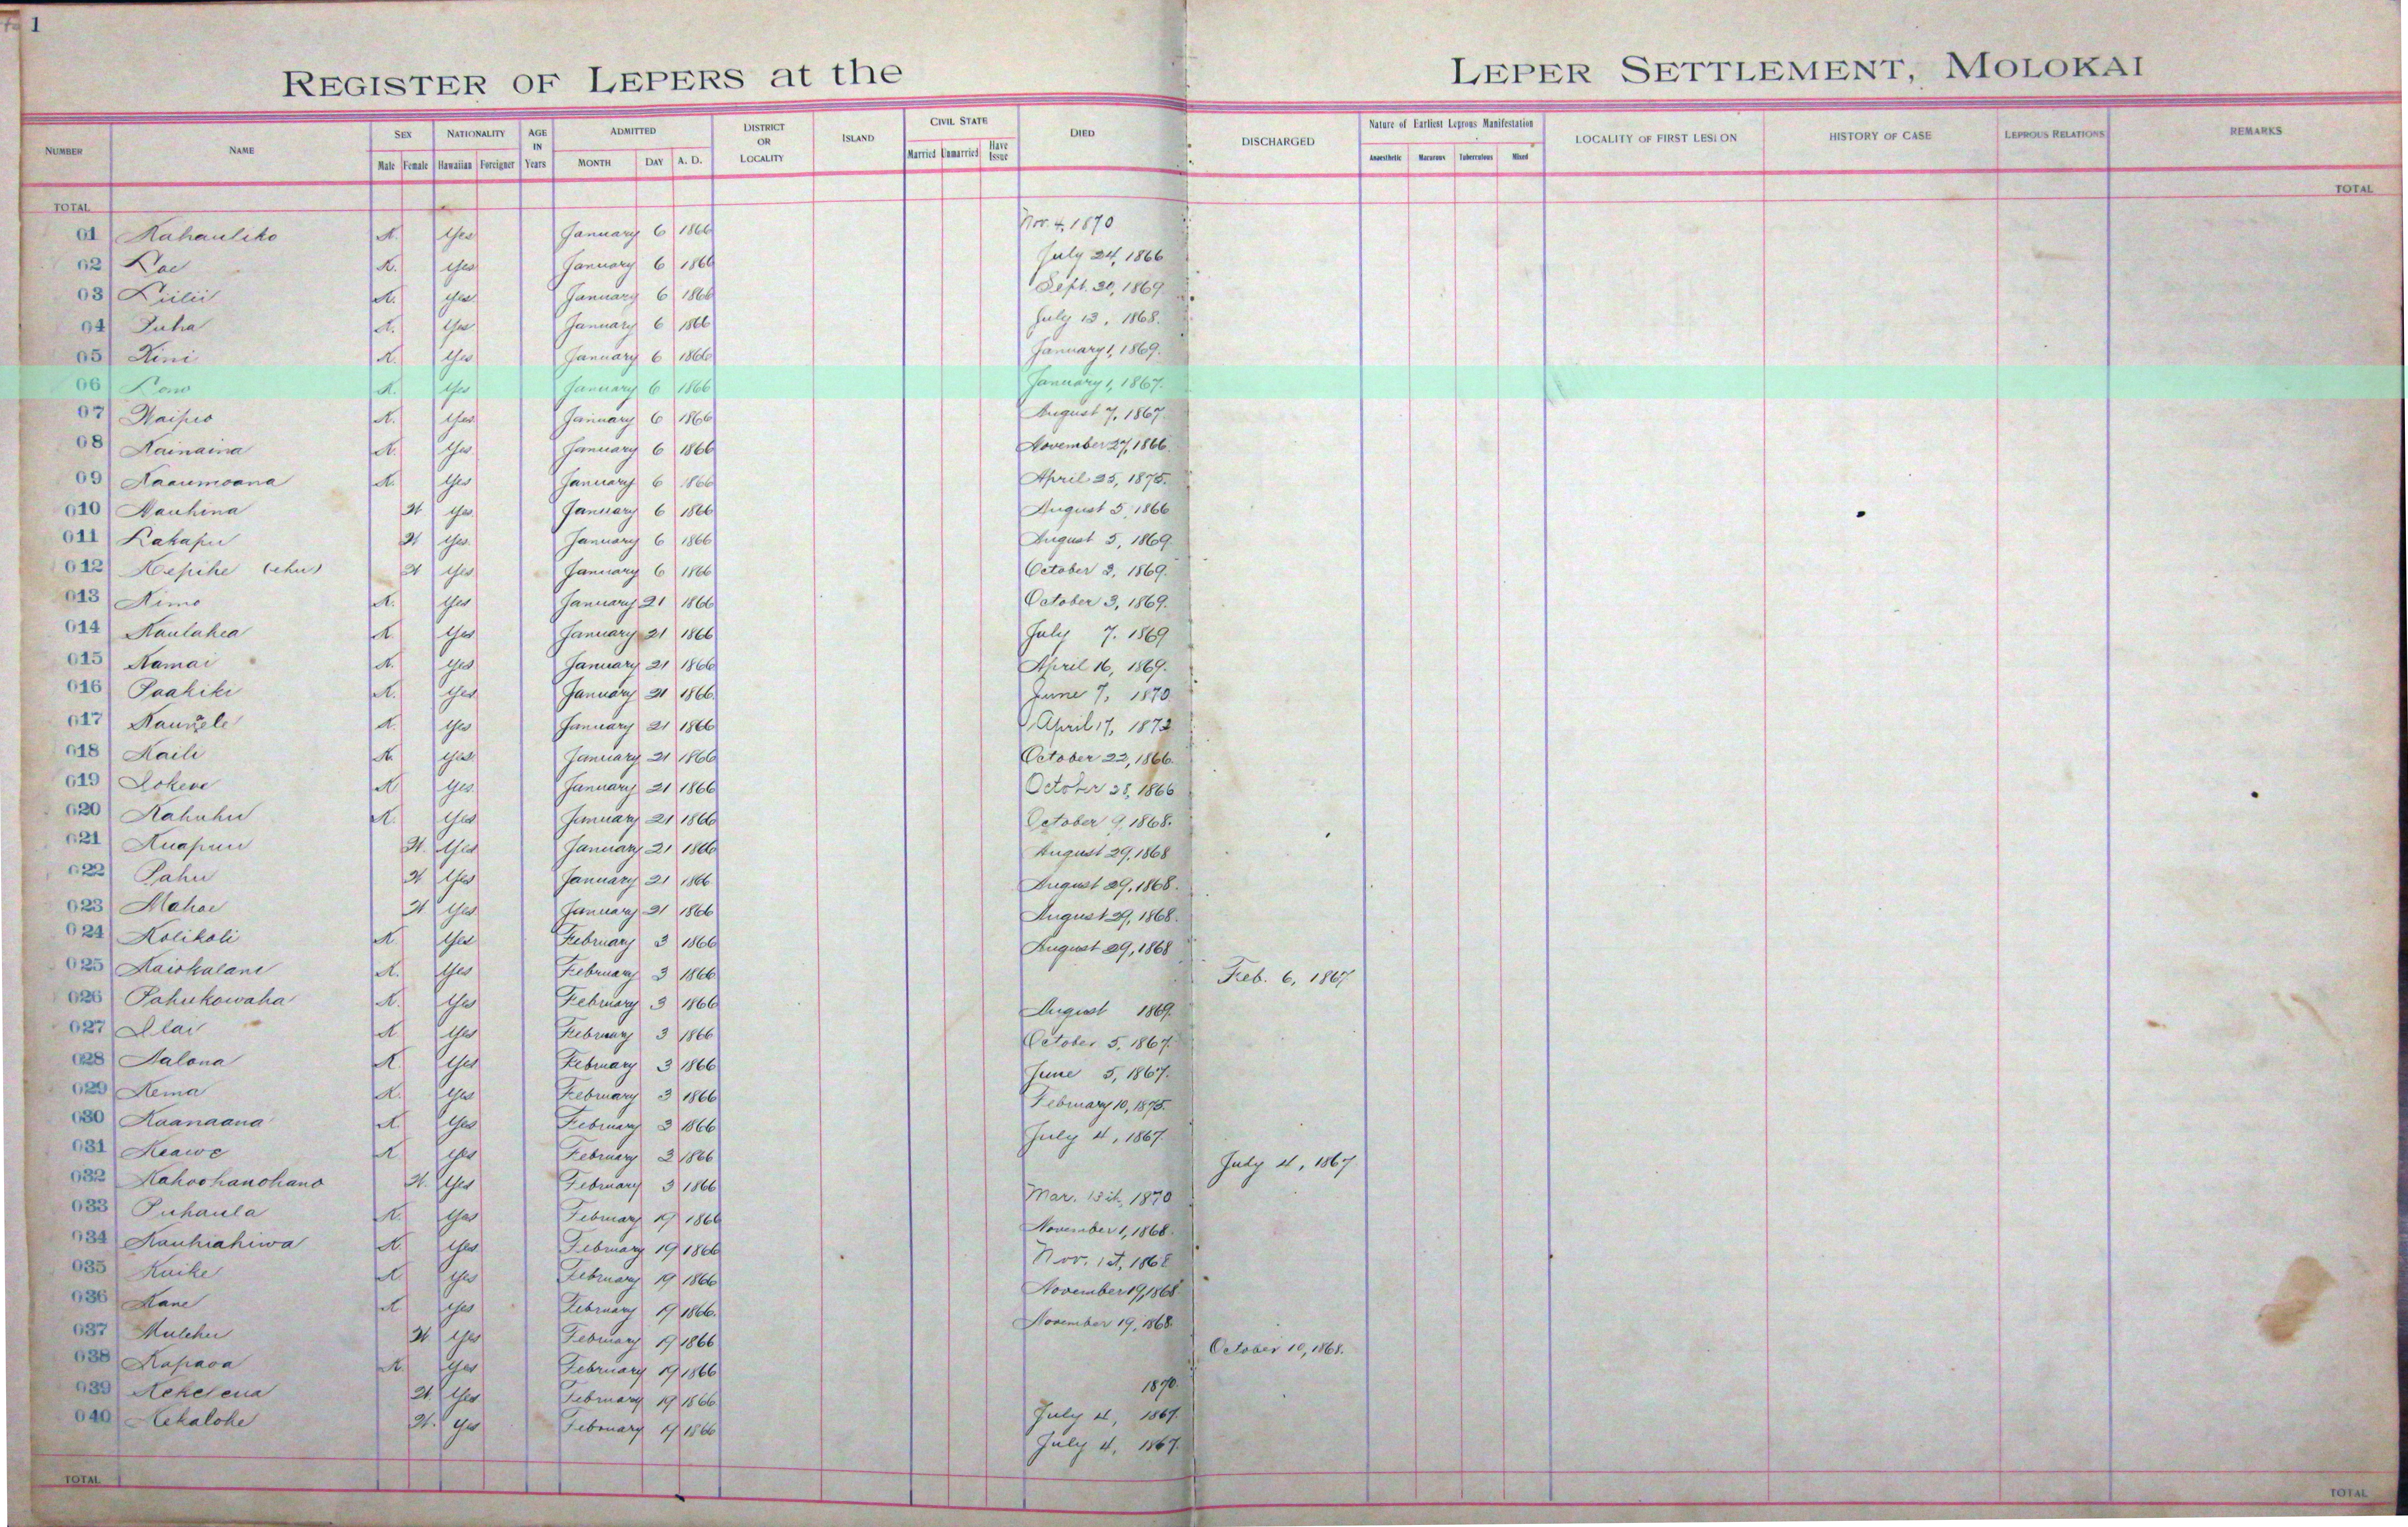 1
REGISTER OF LEPERS at the LEPER SETTLEMENT, MOLOKAI
NUMBER NAME SEX NATIONALITY AGE IN Years ADMITTED DISTRICT OR LOCALITY ISLAND CIVIL STATE DIED DISCHARGED Nature of Earliest Leprous Manifestation LOCALITY OF FIRST LESION HISTORY OF CASE LEPROUS RELATIONS REMARKS
Male Female Hawaiian Foreigner MONTH DAY A. D. Married Unmarried Have Issue Anaesthetic Macurous Tuberculous Mixed
TOTAL TOTAL
01 Kahauliko K. Yes January 6 1866 Nov. 4, 1870
02 Kae K. Yes January 6 1866 July 24, 1866
03 Liilii K. Yes January 6 1866 Sept. 30, 1869.
04 Puha K. Yes January 6 1866 July 13, 1868.
05 Kini K. Yes January 6 1866 January 1, 1869.
06 Lono K. Yes January 6 1866 January 1, 1867.
07 Waipio K. Yes January 6 1866 August 7, 1867.
08 Kainaina K. Yes January 6 1866 November 27, 1866.
09 Kaaumoana K. Yes January 6 1866 April 25, 1875.
010 Nauhina W Yes January 6 1866 August 5, 1866
011 Lakapu W Yes January 6 1866 August 5, 1869.
012 Kepihe (ehu) W Yes January 6 1866 October 2, 1869.
013 Kimo K. Yes January 21 1866 October 3, 1869.
014 Kaulahea K. Yes January 21 1866 July 7, 1869
015 Kamai K. Yes January 21 1866 April 16, 1869.
016 Paakiki K. Yes January 21 1866 June 7, 1870
017 K. Yes January 21 1866 April 17, 1872
018 Kaili K. Yes January 21 1866 October 22, 1866.
019 K Yes January 21 1866 October 28, 1866
020 Kahuhu K. Yes January 21 1866 October 9, 1868.
021 Kuapuu W. Yes January 21 1866 August 29, 1868
022 Pahu W Yes January 21 1866 August 29, 1868.
023 Mahoe W Yes January 21 1866 August 29, 1868.
024 Kolikoli K Yes February 3 1866 August 29, 1868
025 Kaiokalani K. Yes February 3 1866 Feb. 6, 1867
026 Pahukowaha K. Yes February 3 1866 August 1869.
027 Ilai K Yes February 3 1866 October 5, 1867.
028 Kalona K. Yes February 3 1866 June 5, 1867.
029 Kema K. Yes February 3 1866 February 10, 1875.
030 Kaanaana K Yes February 3 1866 July 4, 1867.
031 Keawe K Yes February 3 1866 July 4, 1867
032 Kahoohanohano W. Yes February 3 1866 Mar. 13th, 1870
033 Puhaula K. Yes February 19 1866 November 1, 1868.
034 Kauhiahiwa K. Yes February 19 1866 Nov. 1st, 1868
035 Kaike K Yes February 19 1866 November 19, 1868
036 Kane K Yes February 19 1866. November 19, 1868.
037 Mulehu W Yes February 19 1866 October 10, 1868.
038 Kapaoa K. Yes February 19 1866 1870.
039 Kekelena W. Yes February 19 1866 July 4, 1867.
040 Kekalohe W. Yes February 19 1866 July 4, 1867.
TOTAL TOTAL